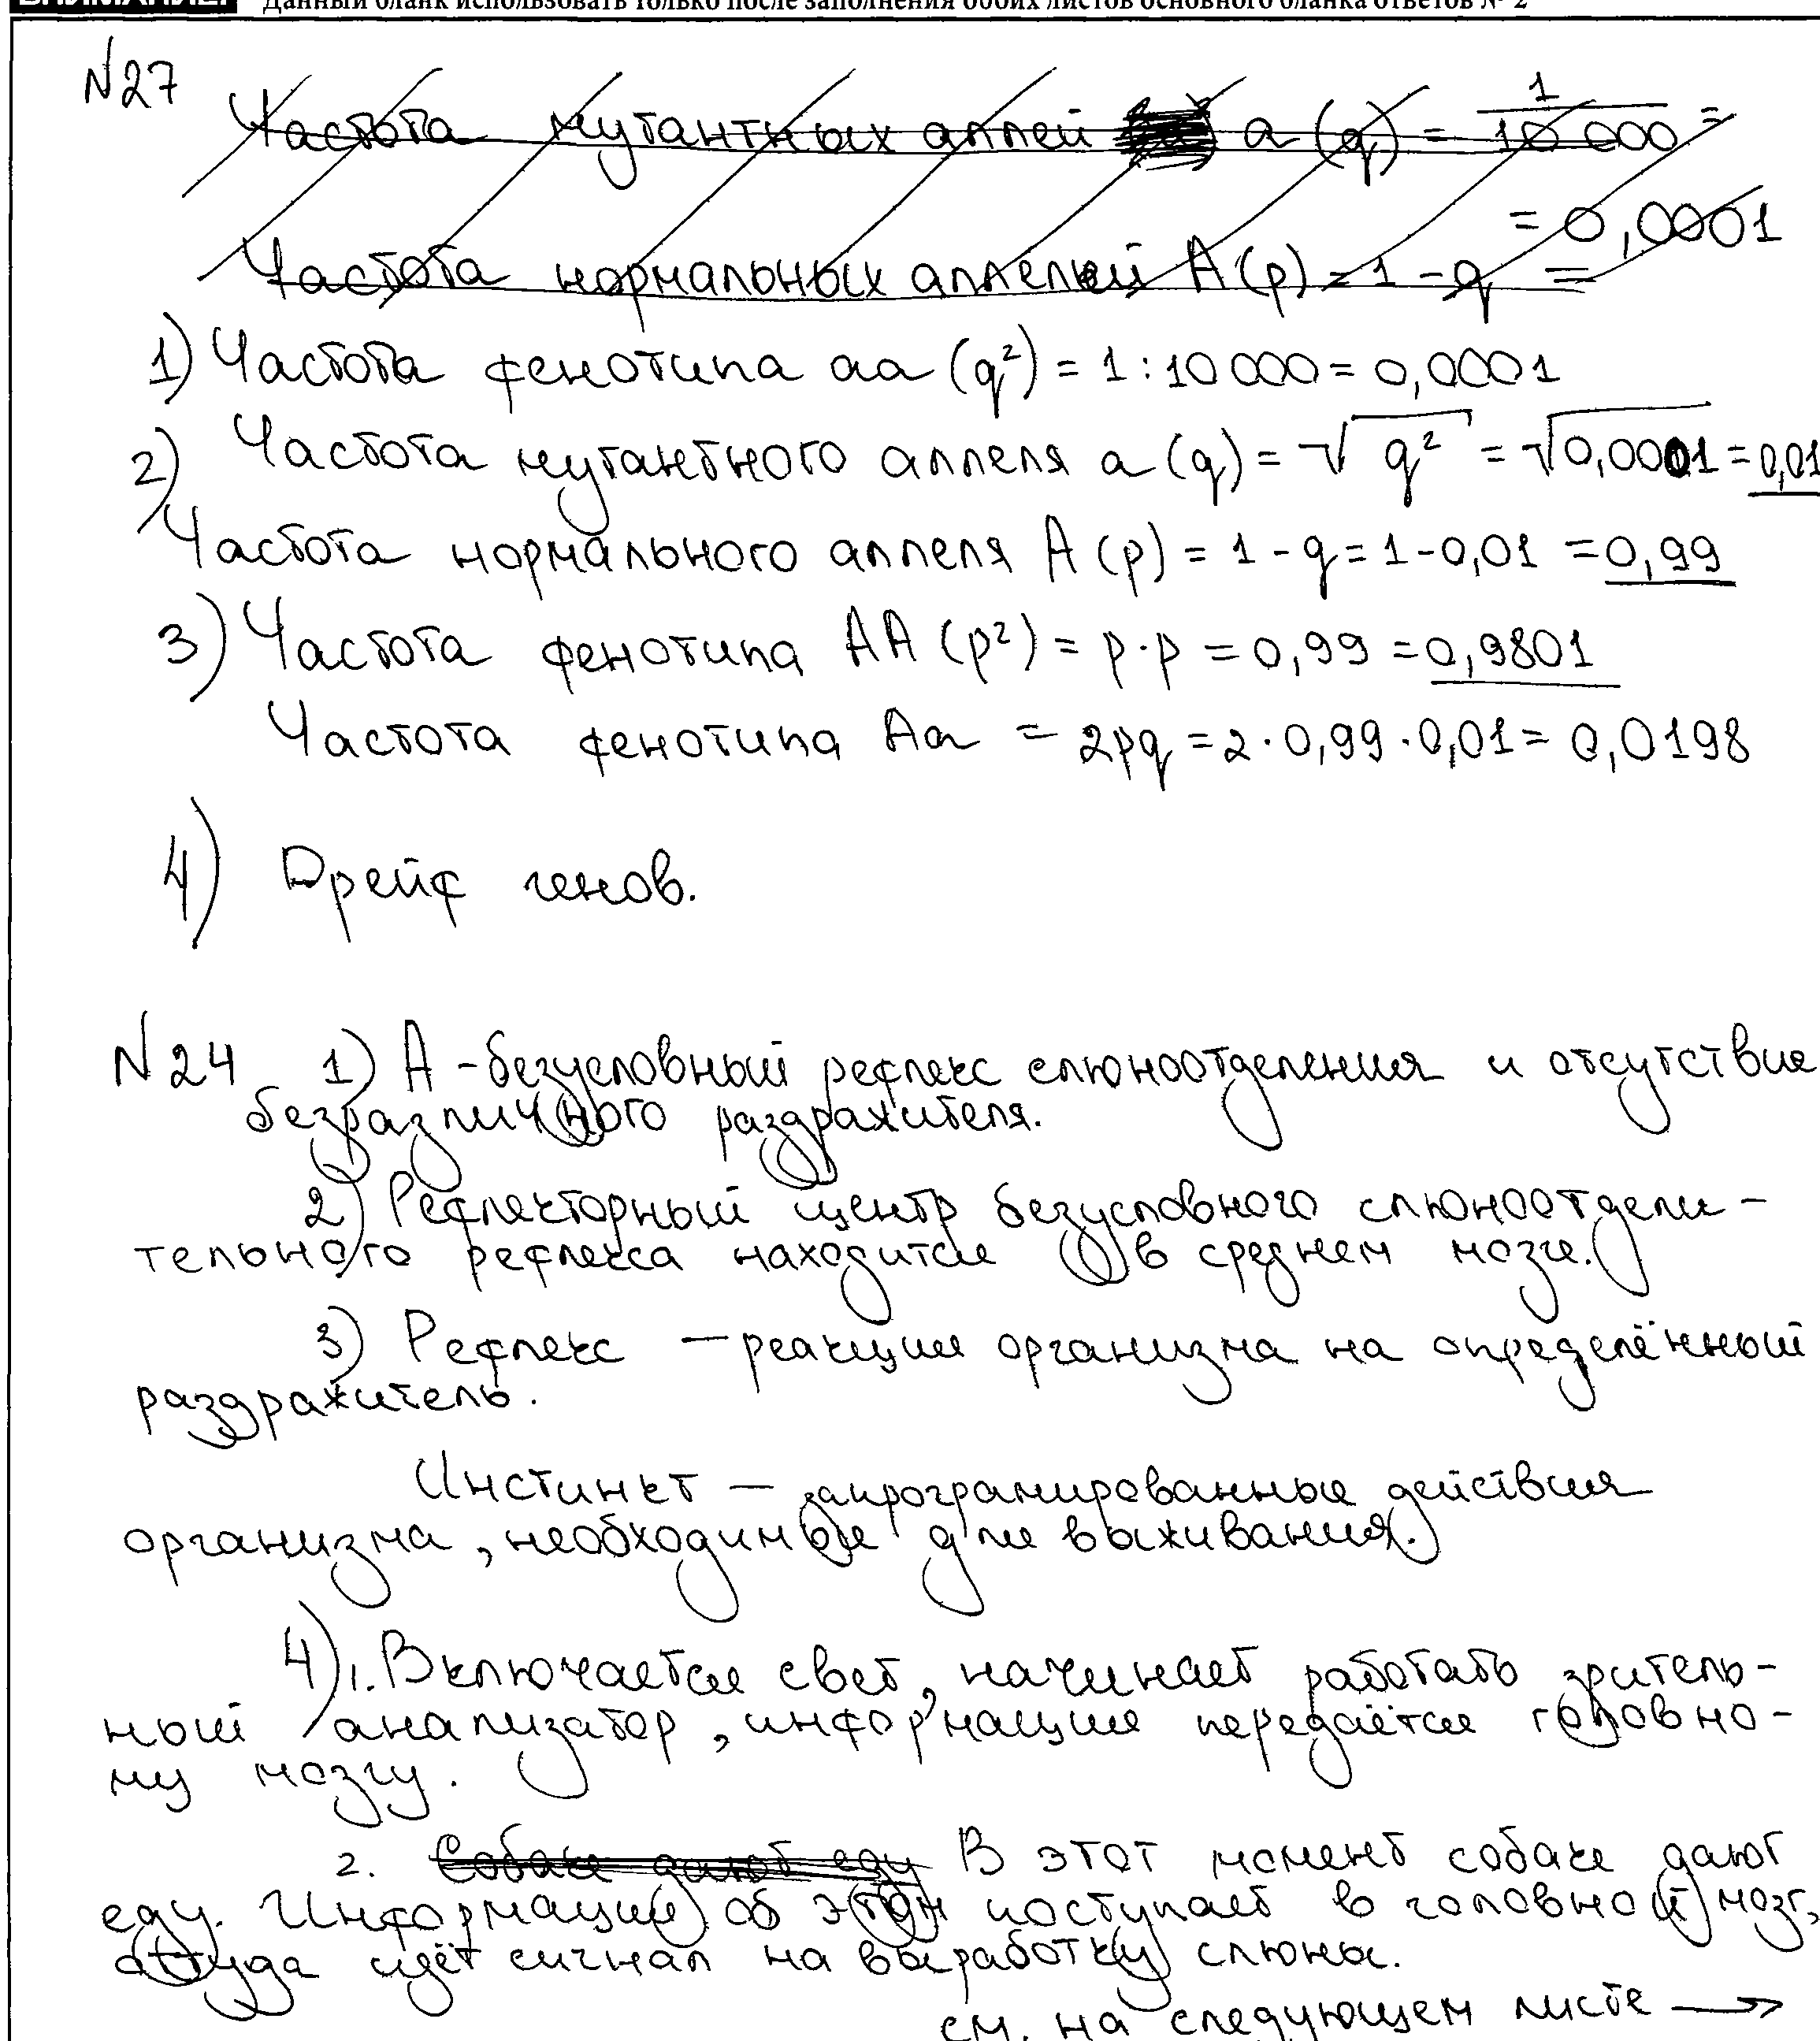 Данный бланк использовать только после заполнения обоих листов основного бланка ответов № 2
№27
Частота мутантных аллей a (q) = 1/10 000 =
= 0,0001
Частота нормальных аллелей A(p) = 1 - q =
1) Частота фенотипа aa (q²) = 1 : 10 000 = 0,0001
2) Частота мутантного аллеля a (q) = √q² = √0,0001 = 0,01
Частота нормального аллеля A (p) = 1 - q = 1 - 0,01 = 0,99
3) Частота фенотипа AA (p²) = p · p = 0,99 = 0,9801
Частота фенотипа Aa = 2pq = 2 · 0,99 · 0,01 = 0,0198
4) Дрейф генов.
№24 1) А - безусловный рефлекс слюноотделения и отсутствие
безразличного раздражителя.
2) Рефлекторный центр безусловного слюноотдели-
тельного рефлекса находится в среднем мозге.
3) Рефлекс — реакция организма на определённый
раздражитель.
Инстинкт — запрограмированные действия
организма, необходимые для выживания.
4) 1. Включается свет, начинает работать зритель-
ный анализатор, информация передаётся головно-
му мозгу.
2. Собаке дают еду В этот момент собаке дают
еду. Информация об этом поступает в головной мозг,
оттуда идёт сигнал на выработку слюны.
см. на следующем листе →